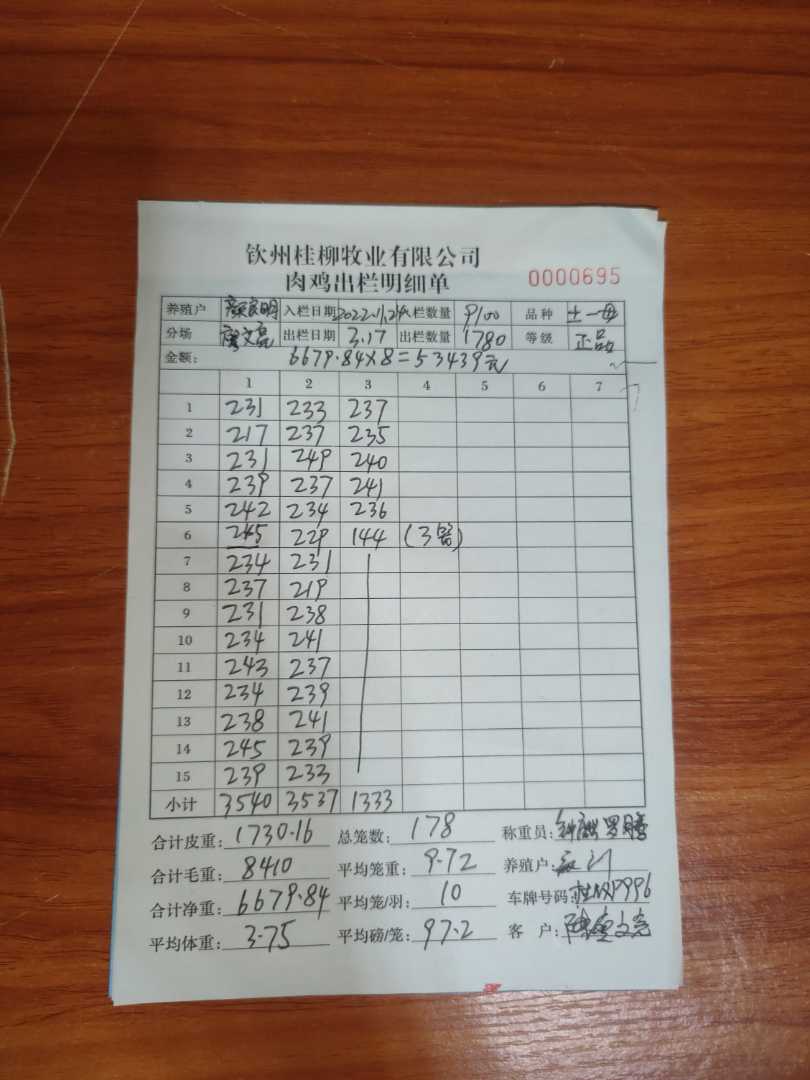 钦州桂柳牧业有限公司
肉鸡出栏明细单 0000695
养殖户 颜家明 入栏日期 2022.11.24 入栏数量 9100 品种 土一母
分场 廖文亮 出栏日期 3.17 出栏数量 1780 等级 正品
金额: 6679.84×8=53439元
1 2 3 4 5 6 7
1 231 233 237
2 217 237 235
3 231 249 240
4 239 237 241
5 242 234 236
6 245 229 144 (3笼)
7 234 231
8 237 219
9 231 238
10 234 241
11 243 237
12 234 239
13 238 241
14 245 239
15 239 233
小计 3540 3537 1333
合计皮重: 1730.16 总笼数: 178 称重员:
合计毛重: 8410 平均笼重: 9.72 养殖户:
合计净重: 6679.84 平均笼/羽: 10 车牌号码:
平均体重: 3.75 平均磅/笼: 97.2 客户: